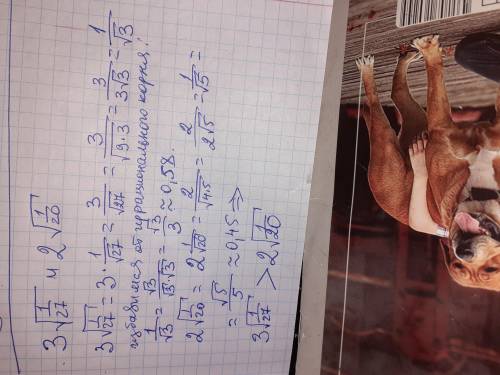 3√(1/27) и 2√(1/20)
3√(1/27) = 3·1/√27 = 3/√27 = 3/√(9·3) = 3/(3√3) = 1/√3
избавимся от иррационального корня:
1/√3 = √3/(√3·√3) = √3/3 ≈ 0,58.
2√(1/20) = 2 1/√20 = 2/√(4·5) = 2/(2√5) = 1/√5 =
= √5/5 ≈ 0,45 ⇒
3√(1/27) > 2√(1/20)